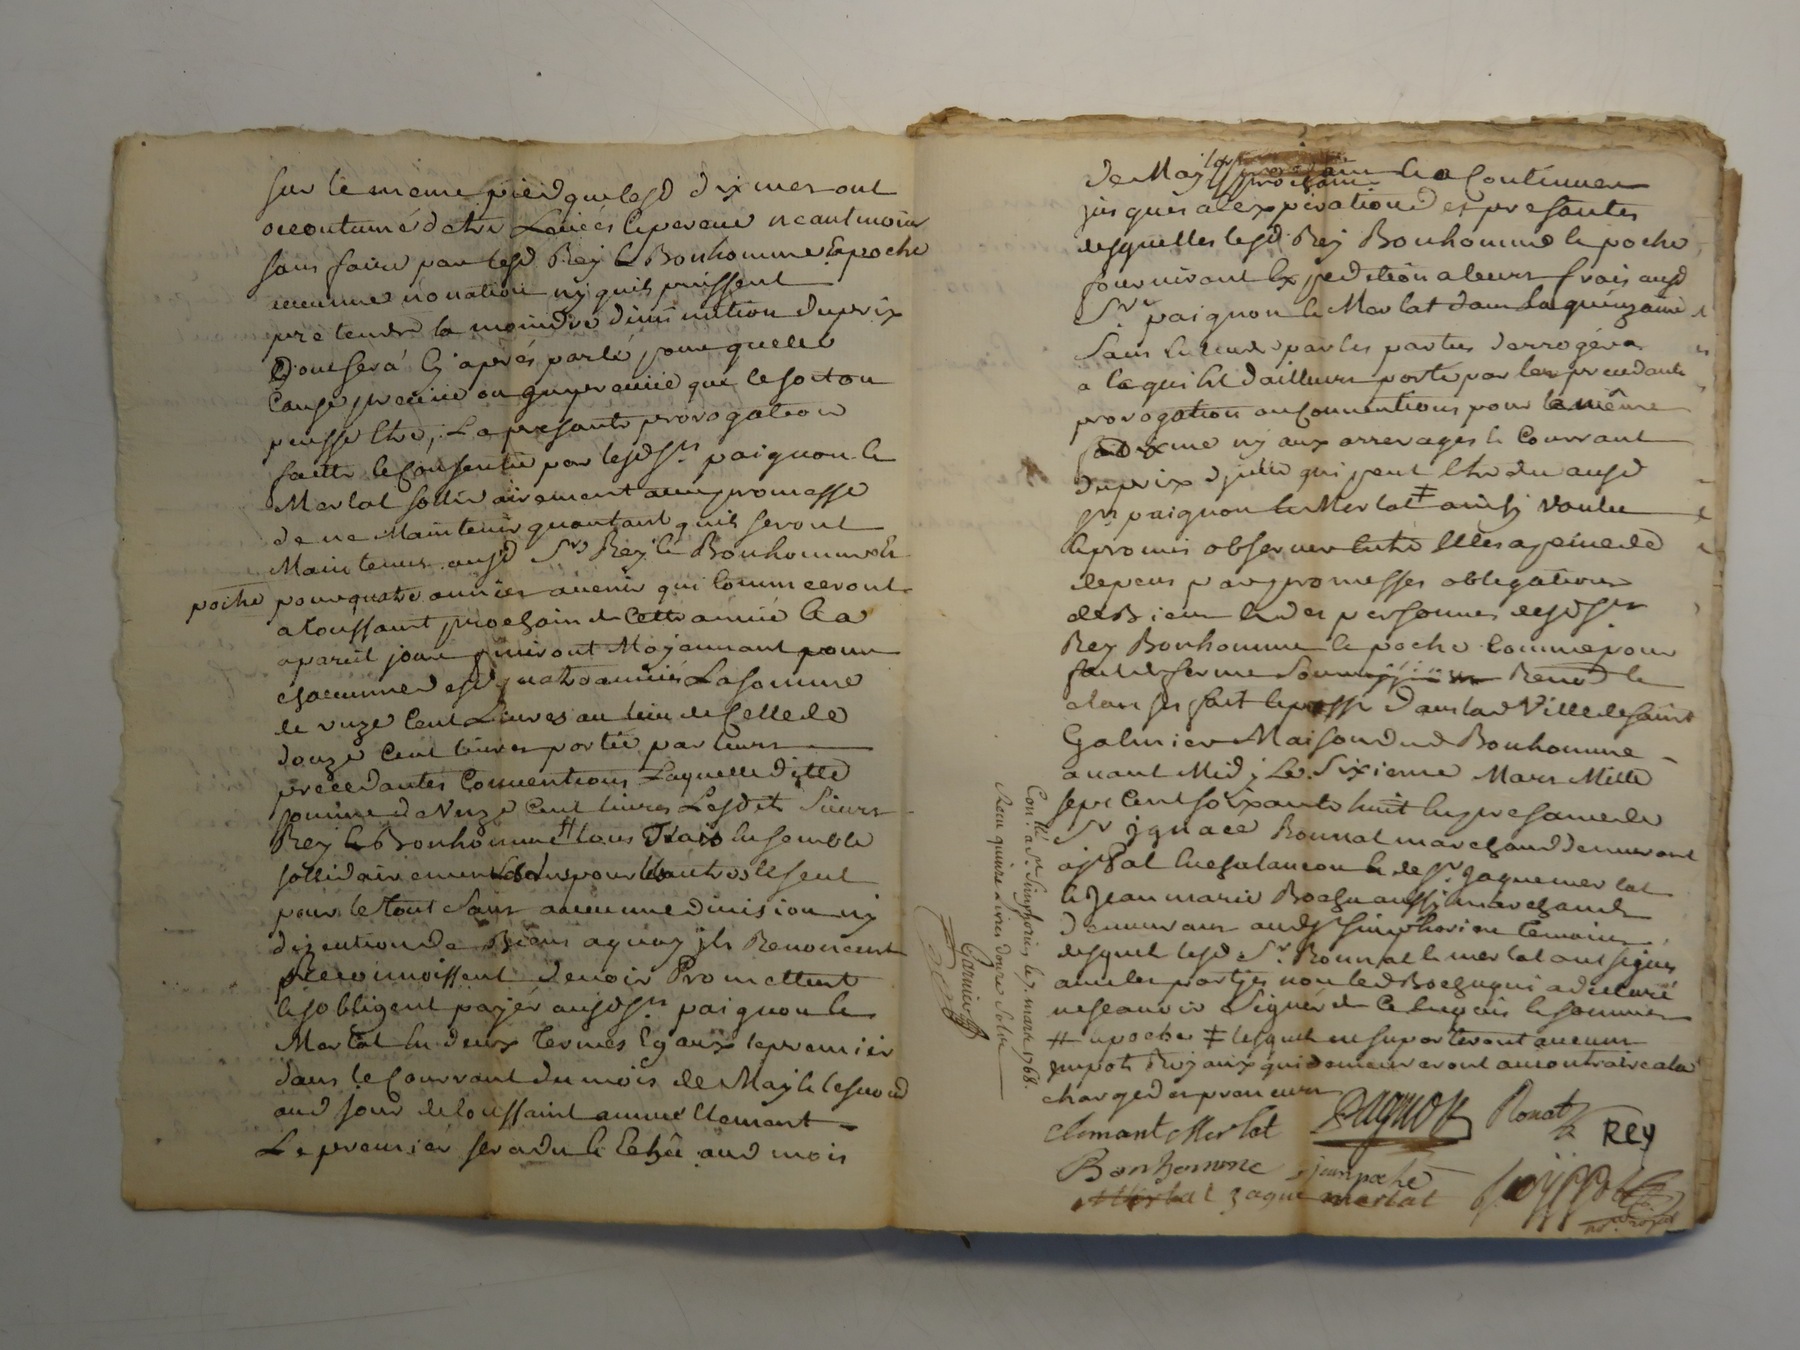 sur le meme pied que lesd dixmes ont
accoutumé detre Levées & percue neantmoins
sans faire par lesd Rey & Bonhomme & poche
aucunne novation ny quils puissent
pretendre la moindre diminution du prix
Dont sera cy après parlé, pour quelle
Cause preveue ou inpreveüe que le soit ou
puisse Etre, La presante prorogation
faitte & Consentie par lesd Srs paignon &
Merlat solidairement avec promesse
de ne Maintenir quautant quils seront
Maintenus ausd Srs Rey & Bonhomme &
poche pour quatre années avenir qui Commeceront
a toussaint prochain de Cette année & a
apareil jour finiront Moyennant pour
chacunne desd quatre années La somme
de onze Cent Livres au lieu de Celle de
douze Cent livres portée par leurs
precedantes Conventions Laquelle ditte
somme de onze Cent livres Lesdit Sieurs
Rey & Bonhomme # tous Trois Ensemble
sollidairement Lun pour Lautre & seul
pour le tout Sans aucunne division ny
dixcution de Biens a quoy ils Renoncent
Reconnoissent devoir Promettent
& sobligent payer ausd Srs paignon &
Merlat En deux termes Egaux le premier
dans le Courrant du mois de May & le second
aud jour de toussaint annuellement
Le premier sera du & Echû aud mois
de May prochain & a Continuer
jusques a lexpiration des presantes
desquelles lesd Rey Bonhomme & poche
fourniront Expedition a leurs frais ausd
Srs paignon & Merlat dans la quinzaine
Sans Entendre par les parties derroger
a ce qui Est dailleurs porté par les precedante
prorogation ou Conventions pour le même
dixme ny aux arrerages & Courrant
du prix dicelle qui peut Etre du ausd
Srs paignon & Merlat ‡ ainsy voulu
& promis observer Entre Elles a peine de
depens par promesses obligations
de Biens & des personnes desd Srs
Rey Bonhomme & poche Comme pour
fait de ferme Soum Renon &
clauses fait & passé Dans lad Ville de saint
Galmier Maison dud Bonhomme
avant Midy Le Sixieme Mars Mille
sept Cent soixante huit En presance de
Sr jgnace Ronnat marchand demeurant
a & de Sr jaque merlat
& Jean marie Bochu aussy marchand
demeurant aud St simphorien temoins
desquels lesd Sr Ronnat & merlat ont signés
avec les parties non led Bochu qui a declaré
ne scavoir Signer de Ce Enquis & sommé
# & poche ‡ lesquels ne suporteront aucuns
impots Royaux qui demeureront au contraire a la
charge des preneurs
Con.llé a St Simphorien le 7 mars 1768.
Recu quinze Livres douze Sols
Garnier
clemant Merlat Pagnon Ronat REY
Bonhomme jean poche
jaque merlat
no.re royal